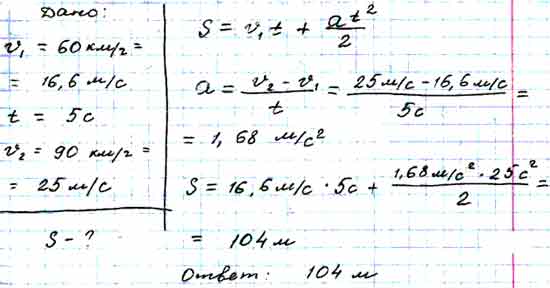 Дано:
v₁ = 60 км/г =
= 16,6 м/с
t = 5с
v₂ = 90 км/г =
= 25 м/с
S - ?
S = v₁t + at²/2
a = (v₂ - v₁)/t = (25 м/с - 16,6 м/с)/5с =
= 1,68 м/с²
S = 16,6 м/с · 5с + (1,68 м/с² · 25с²)/2 =
= 104 м
Ответ: 104 м